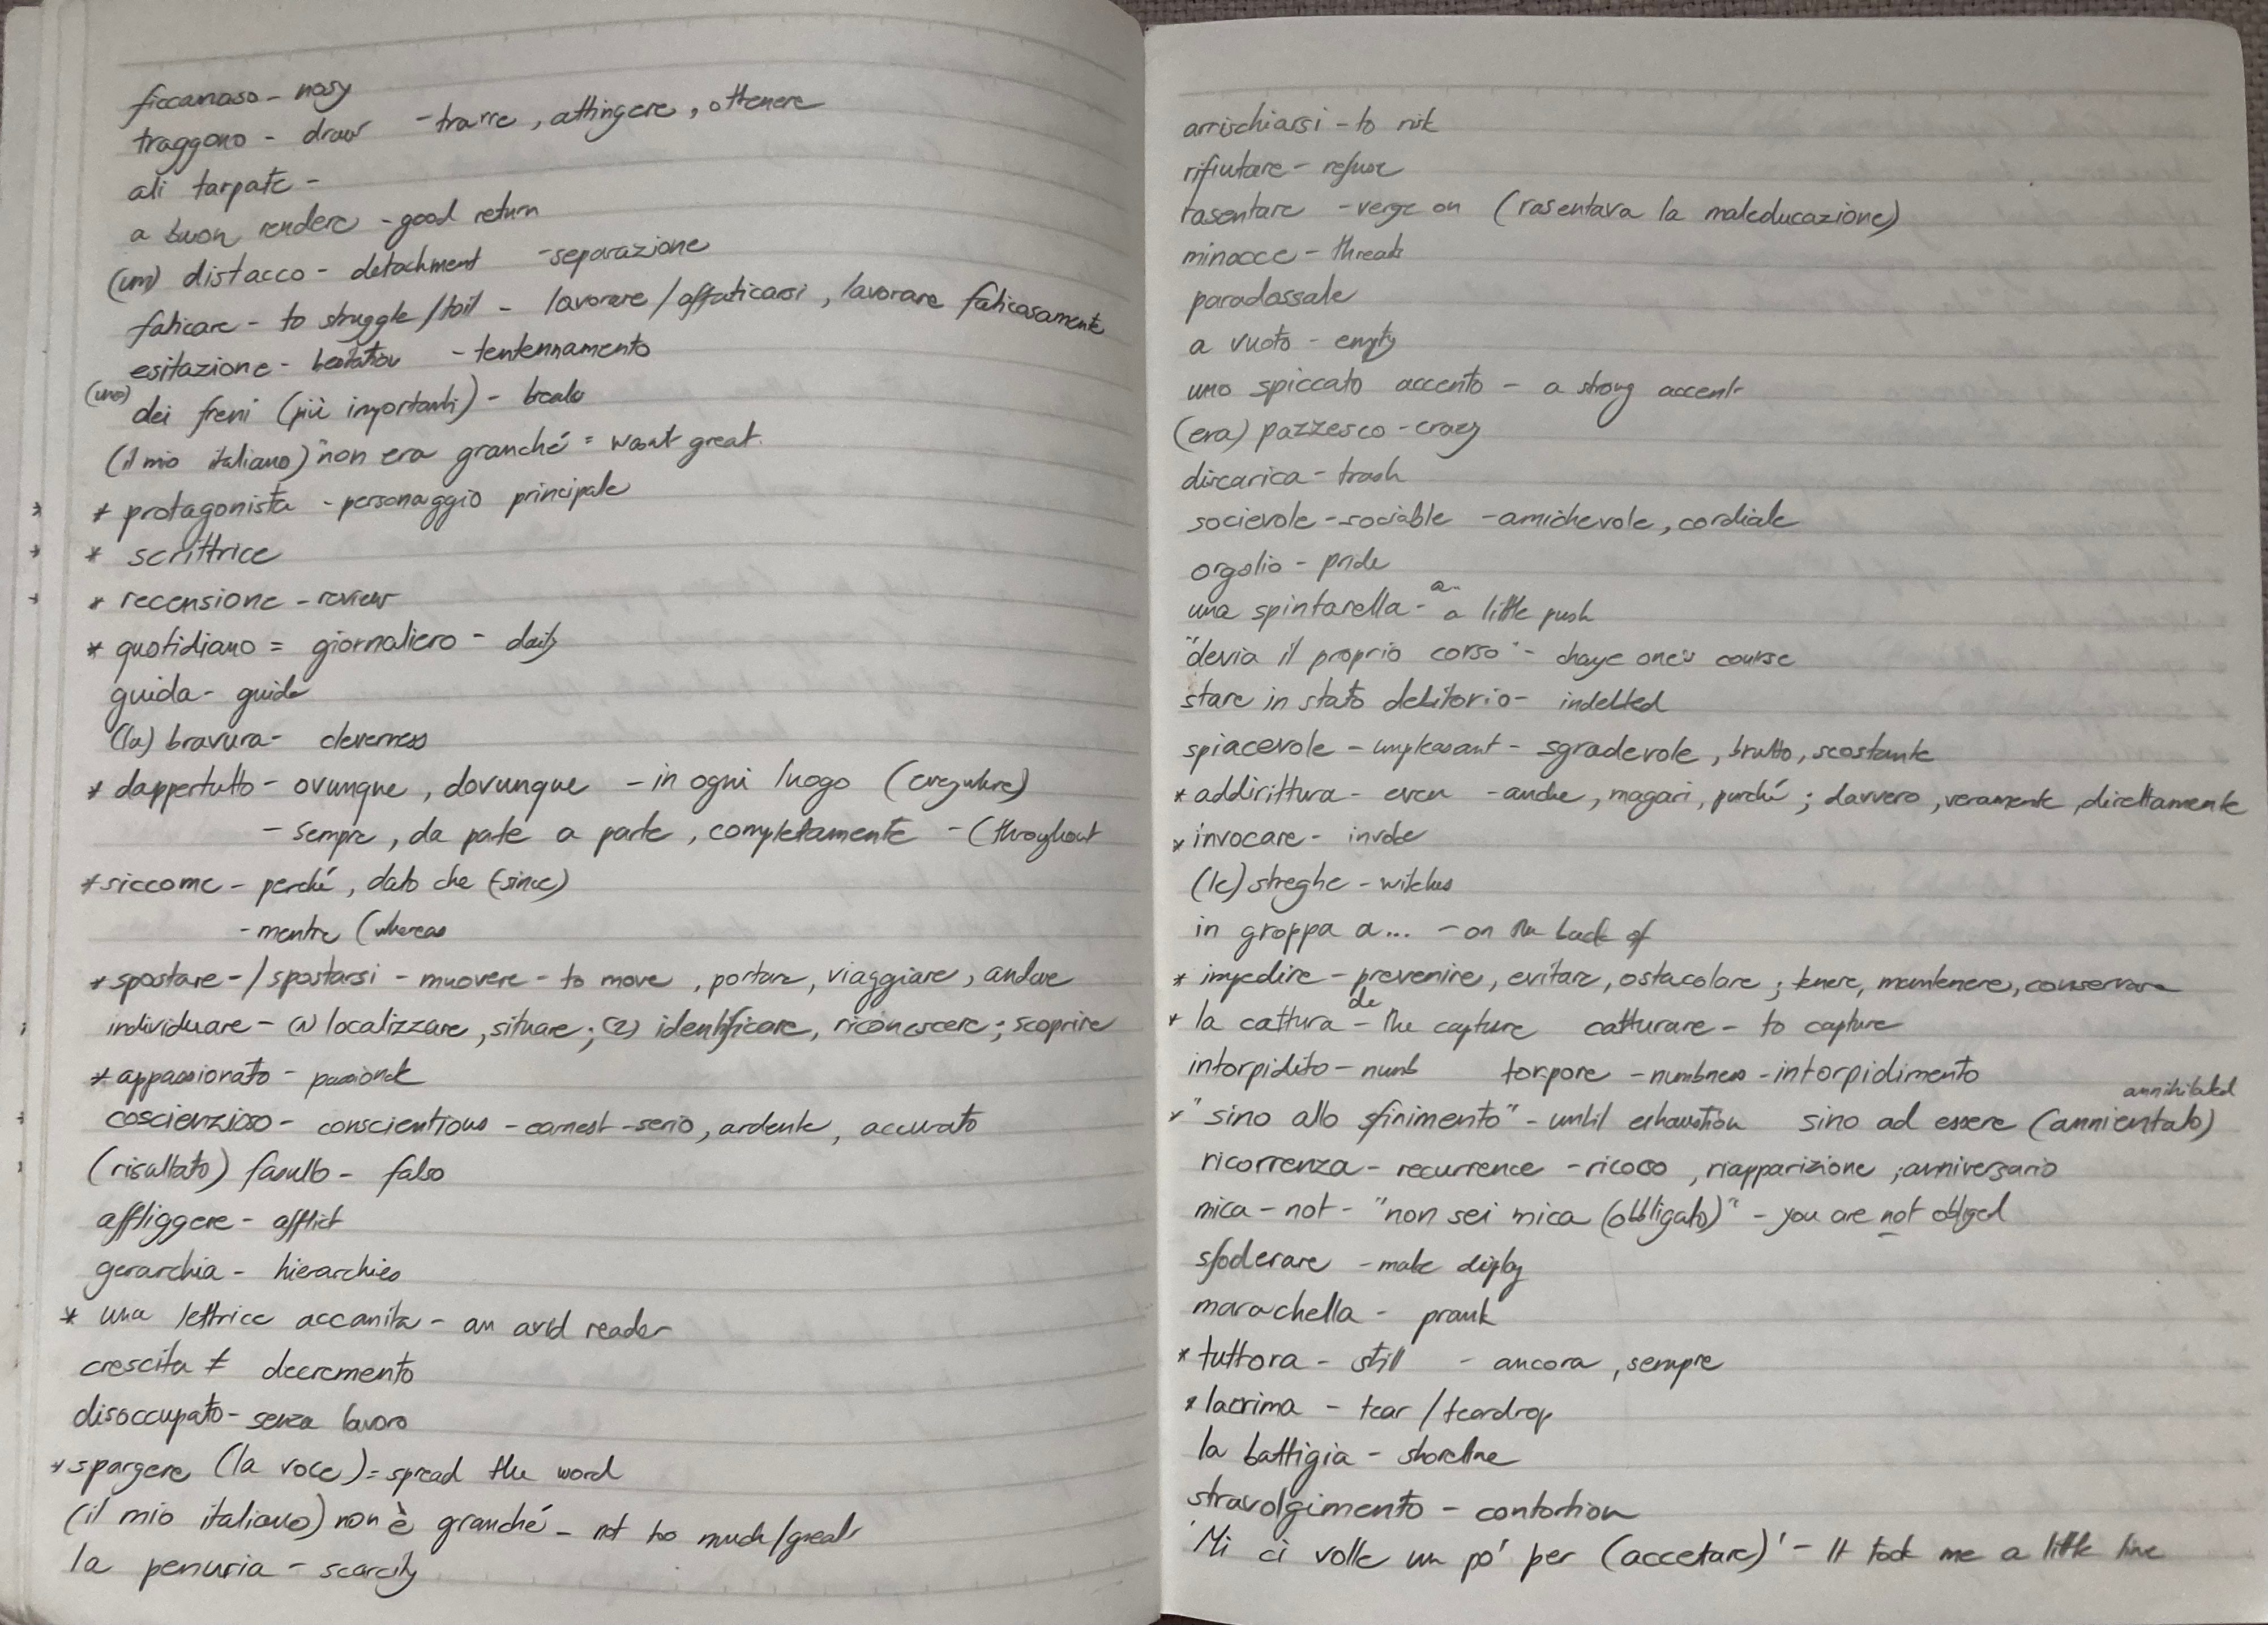 ficcanaso - nosy
traggono - draw - trarre, attingere, ottenere
ali tarpate -
a buon rendere - good return
(un) distacco - detachment - separazione
faticare - to struggle/toil - lavorare/affaticarsi, lavorare faticosamente
esitazione - hesitation - tentennamento
(uno) dei freni (più importanti) -
(il mio italiano) "non era granché = wasnt great.
* protagonista - personaggio principale
* scrittrice
* recensione - review
* quotidiano = giornaliero - daily
guida - guide
(la) bravura - cleverness
* dappertutto - ovunque, dovunque - in ogni luogo (everywhere)
- sempre, da parte a parte, completamente - (throughout
* siccome - perché, dato che (since)
- mentre (whereas
* spostare - / spostarsi - muovere - to move, portare, viaggiare, andare
individuare - (1) localizzare, situare; (2) identificare, riconoscere; scoprire
* appassionato - passionate
coscienzioso - conscientious - earnest - serio, ardente, accurato
(risultato) fasullo - falso
affliggere - afflict
gerarchia - hierarchies
* una lettrice accanita - an avid reader
crescita ≠ decremento
disoccupato - senza lavoro
* spargere (la voce) = spread the word
(il mio italiano) non è granché - not too much/great
la penuria - scarcity
arrischiarsi - to risk
rifiutare - refuse
rasentare - verge on (rasentava la maleducazione)
minacce - threats
paradossale
a vuoto - empty
uno spiccato accento - a strong accent
(era) pazzesco - crazy
discarica - trash
socievole - sociable - amichevole, cordiale
orgolio - pride
una spintarella - a little push
"devia il proprio corso" - change one's course
stare in stato debitorio - indebted
spiacevole - unpleasant - sgradevole, brutto, scostante
* addirittura - even - anche, magari, purché; davvero, veramente, direttamente
* invocare - invoke
(le) streghe - witches
in groppa a... - on the back of
* impedire - prevenire, evitare, ostacolare; tenere, mantenere, conservare
* la cattura - the capture catturare - to capture
intorpidito - numb torpore - numbness - intorpidimento
annihilated
* "sino allo sfinimento" - until exhaustion sino ad essere (annientato)
ricorrenza - recurrence - ricorso, riapparizione; anniversario
mica - not - "non sei mica (obbligato)" - you are not obliged
sfoderare - make display
marachella - prank
* tuttora - still - ancora, sempre
* lacrima - tear / teardrop
la battigia - shoreline
stravolgimento - contortion
'Mi ci volle un po' per (accetare)' - It took me a little time